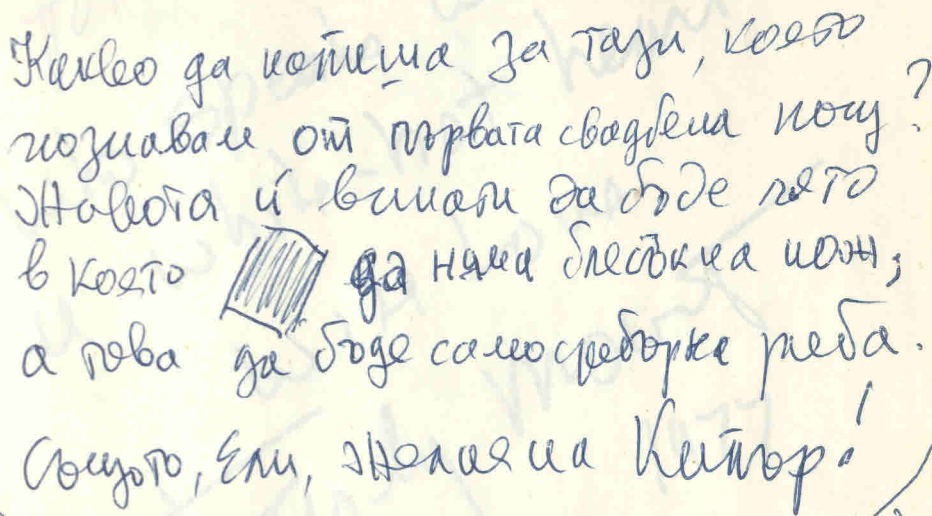 Какво да напиша за тази, която
познавам от първата сватбена нощ?
Живота ѝ винаги да бъде лято
в което да няма блясък на нож,
а това да бъде само сребърна риба.
Същото, Ели, желая на Кипър!